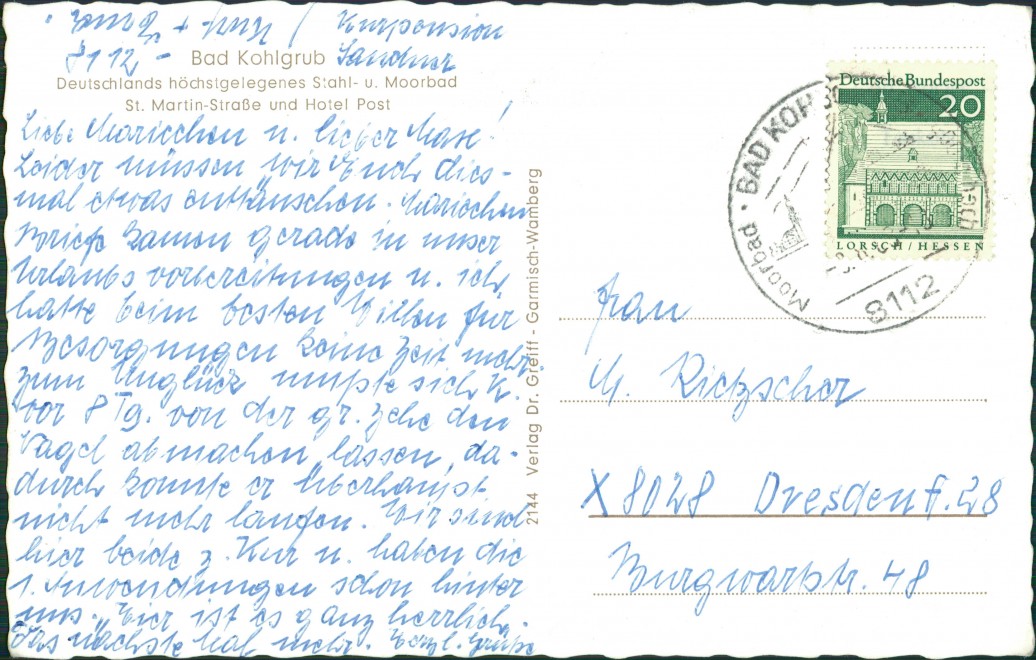 Kurpension
8112 - Sandner
Bad Kohlgrub
Deutschlands höchstgelegenes Stahl- u. Moorbad
St. Martin-Straße und Hotel Post
Liebe Mariechen u. lieber Max!
Leider müssen wir Euch dies-
mal etwas enttäuschen. Mariechens
Briefe kamen gerade in unser
Urlaubsvorbereitungen u. ich
hatte beim besten Willen für
Besorgungen keine Zeit mehr.
Zum Unglück mußte sich K.
vor 8 Tg. von der gr. Zehe den
Nagel abmachen lassen, da-
durch konnte er überhaupt
nicht mehr laufen. Wir sind
hier beide z. Kur u. haben die
1. Anwendungen schon hinter
uns. Hier ist es ganz herrlich.
Das nächste Mal mehr. Herzl. Grüße
2144 Verlag Dr. Greiff - Garmisch-Wamberg
Deutsche Bundespost
20
LORSCH / HESSEN
Moorbad · BAD KOH
8112
Frau
M. Rietzscher
X 8028 Dresden A. 28
Burgwartstr. 48